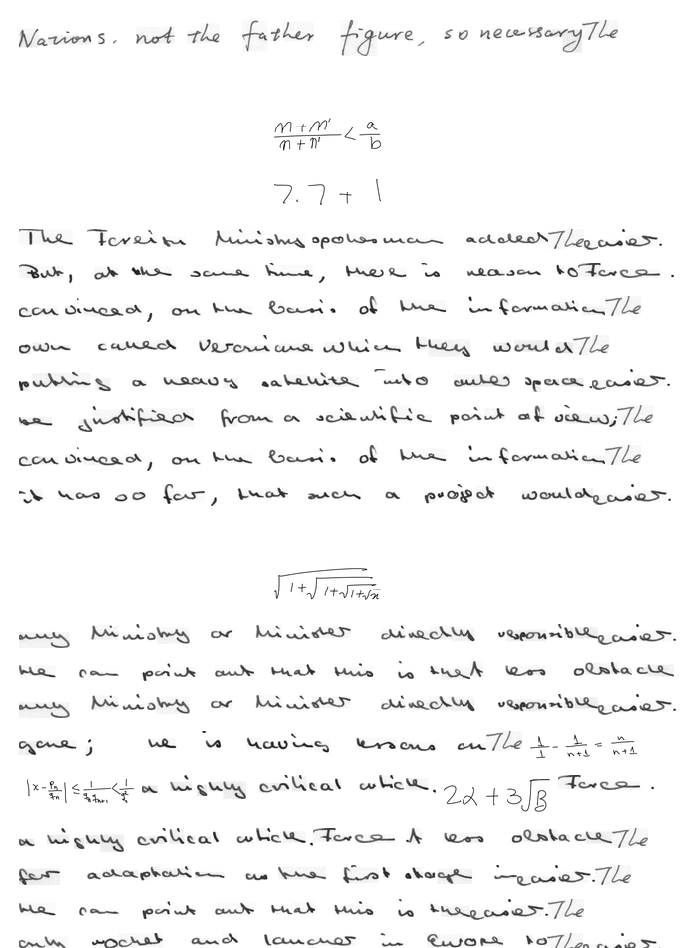 Nations. not the father figure, so necessary The
\frac{m+m'}{n+n'} < \frac{a}{b}
7.7 + 1
The Foreign Ministry spokesman added The easier.
But, at the same time, there is reason to Force .
convinced, on the basis of the information The
own called Veroniane which they would The
putting a heavy satellite into outer space easier.
be justified from a scientific point of view; The
convinced, on the basis of the information The
it has so far, that such a project would easier.
\sqrt{1+\sqrt{1+\sqrt{1+\sqrt{x}}}}
any Ministry or Minister directly responsible easier.
We can point out that this is the A less obstacle
any Ministry or Minister directly responsible easier.
gone; he is having lessons on The \frac{1}{1} - \frac{1}{n+1} = \frac{n}{n+1}
|x - \frac{p_n}{q_n}| ≤ \frac{1}{q_n q_{n+1}} < \frac{1}{q_n^2} a highly critical article. 2α + 3\sqrt{β} Force .
a highly critical article. Force A less obstacle The
for adaptation as the first stage in easier. The
We can point out that this is the easier. The
only rocket and launcher in Europe to The easier.